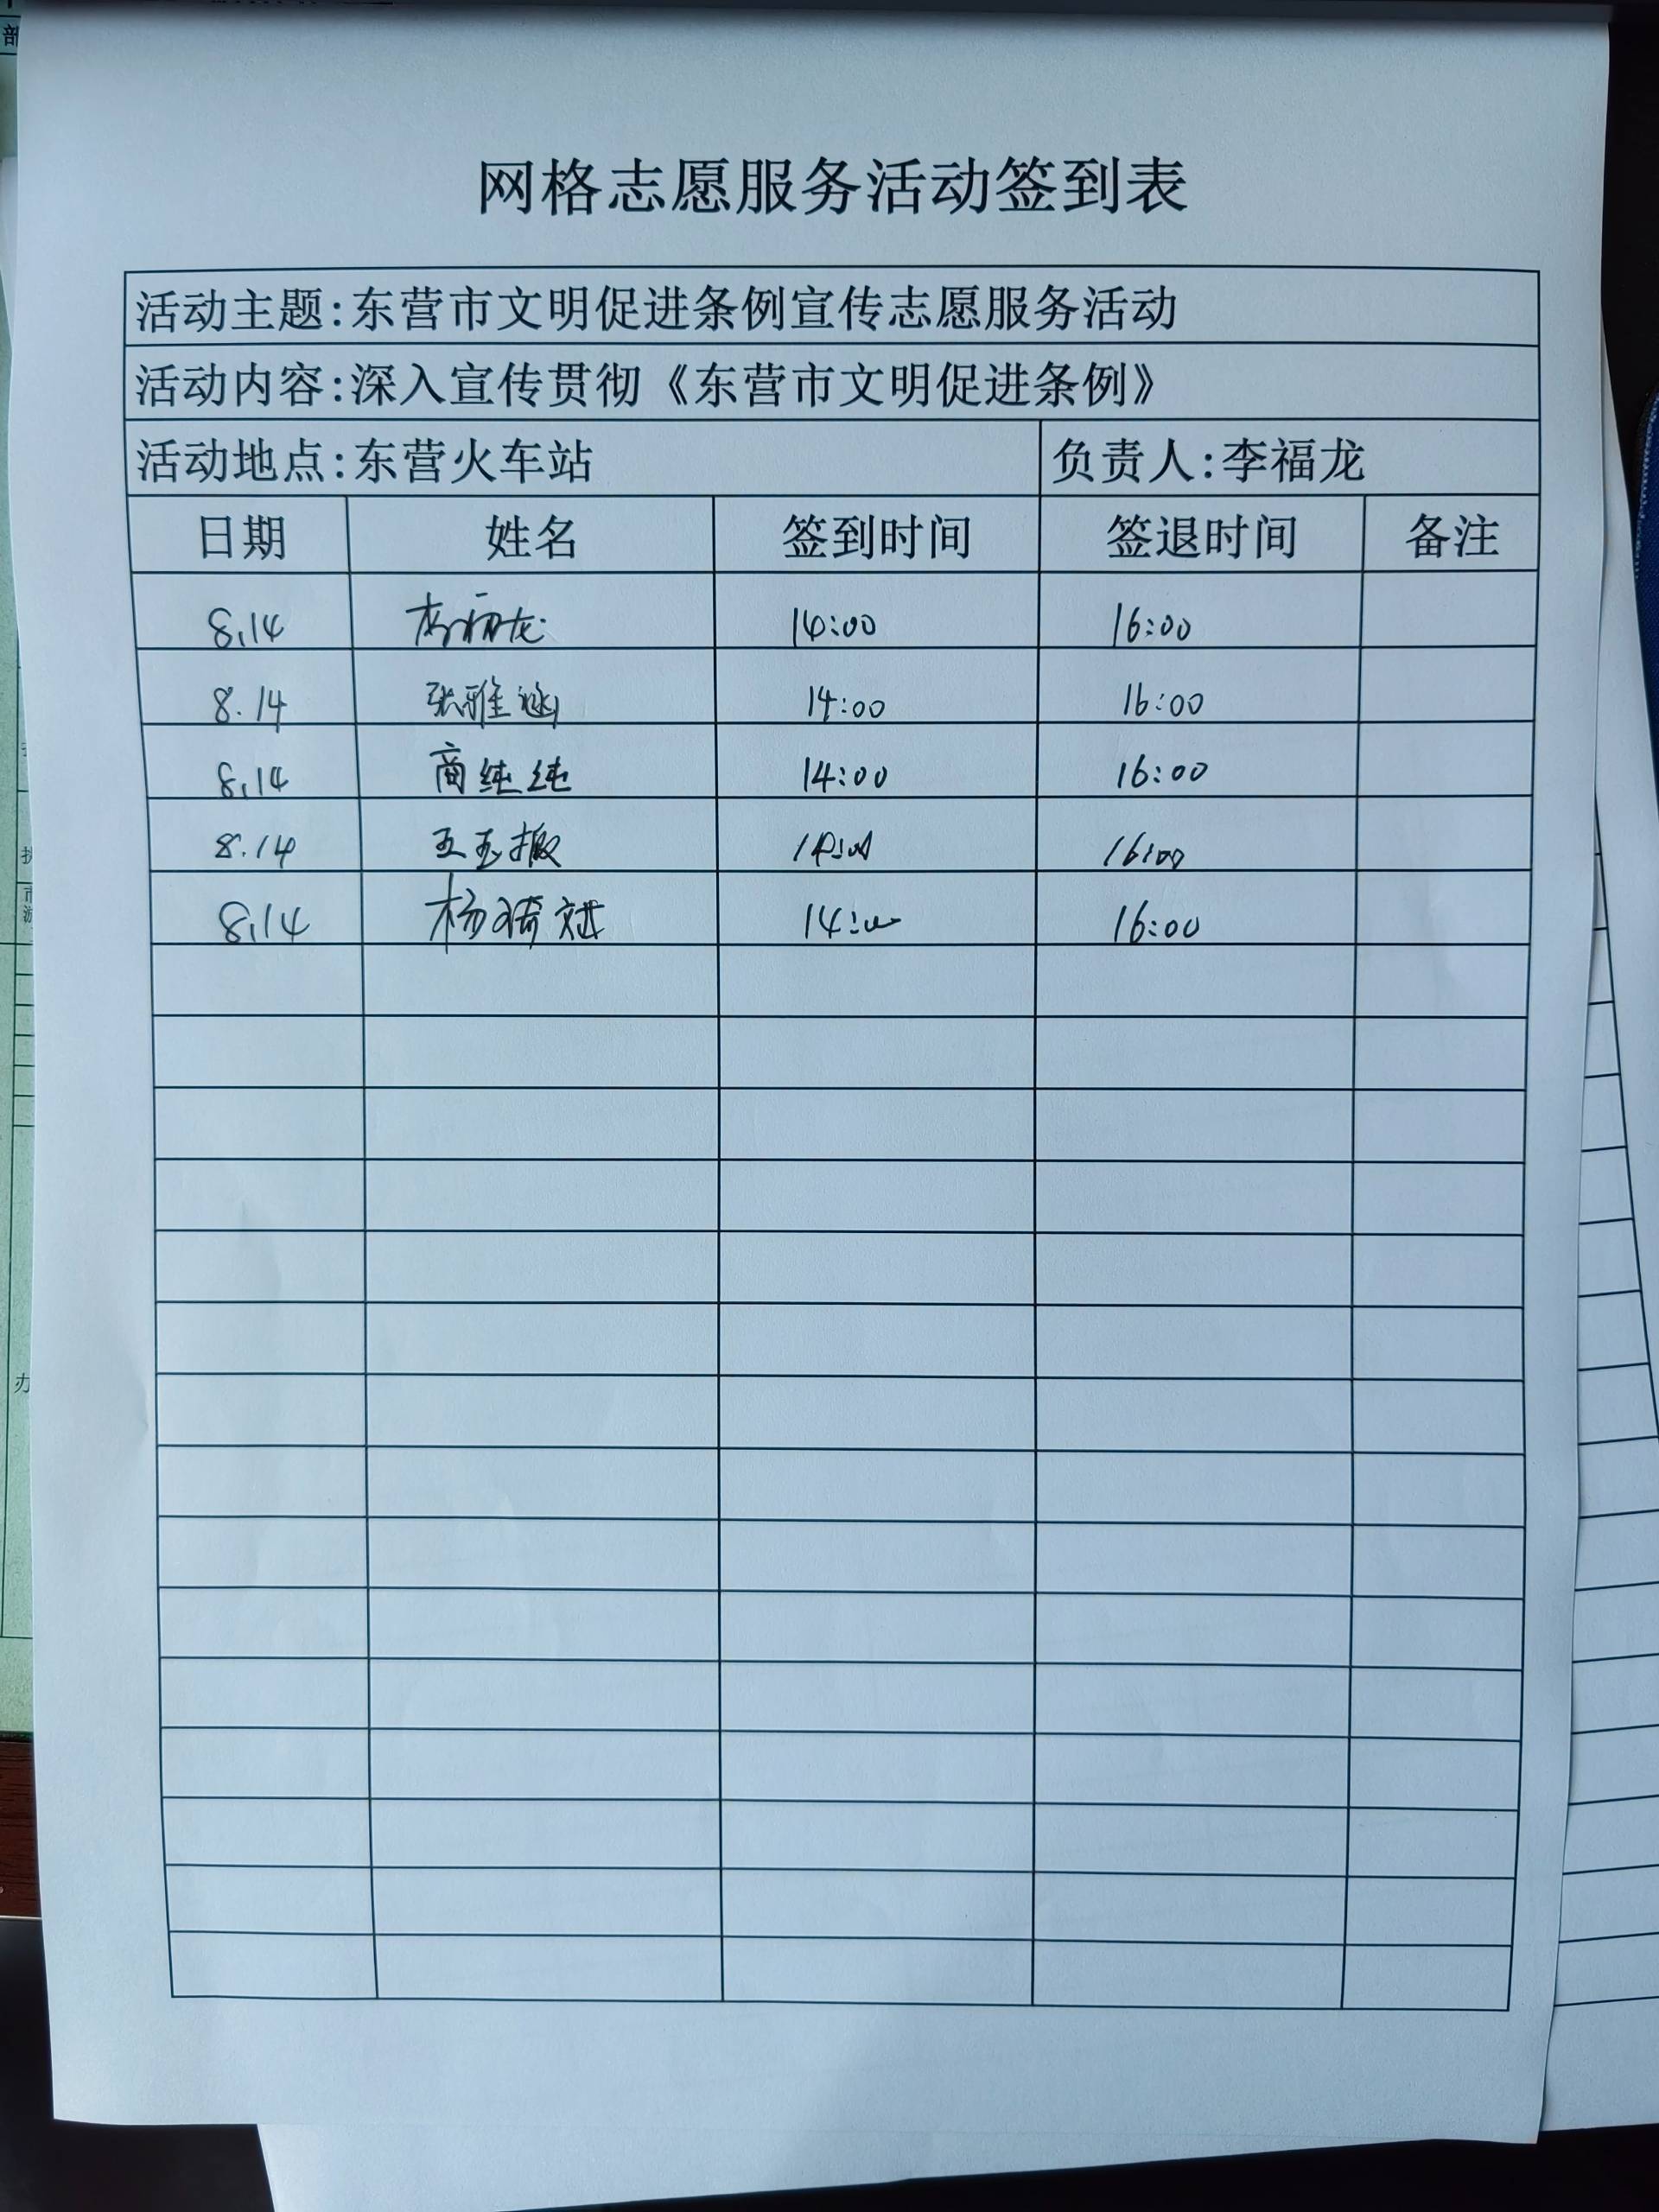 网格志愿服务活动签到表
活动主题:东营市文明促进条例宣传志愿服务活动
活动内容:深入宣传贯彻《东营市文明促进条例》
活动地点:东营火车站 负责人:李福龙
日期 姓名 签到时间 签退时间 备注
8.14 李福龙 14:00 16:00
8.14 张雅涵 14:00 16:00
8.14 商纯纯 14:00 16:00
8.14 王玉振 14:00 16:00
8.14 杨 14:00 16:00
部
办